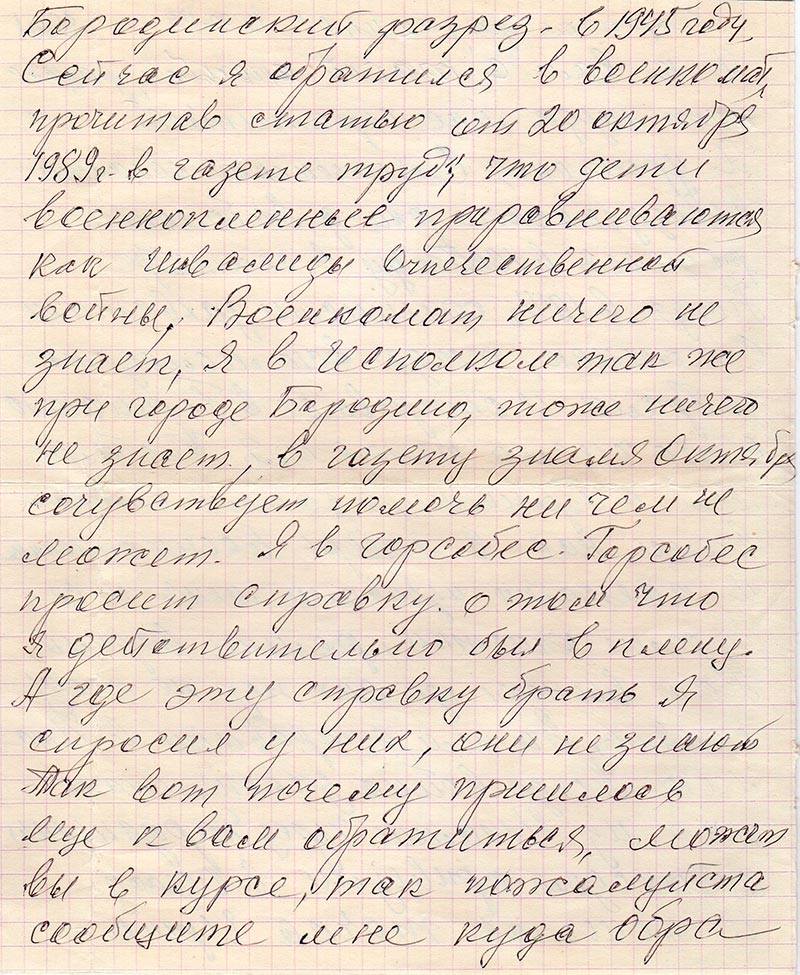 Бородинский разрез - в 1975 году.
Сейчас я обратился в военкомат,
прочитав статью от 20 октября
1989г. в газете труд, что дети
военнопленные приравниваются
как инвалиды Отечественной
войны. Военкомат ничего не
знает, я в Исполком так же
при городе Бородино, тоже ничего
не знает, в газету знамя Октября
сочувствует помочь ни чем не
может. Я в горсобес. Горсобес
просит справку. о том что
я действительно был в плену.
А где эту справку брать я
спросил у них, они не знают
Так вот почему пришлось
мне к вам обратиться, может
вы в курсе, так пожалуйста
сообщите мне куда обра